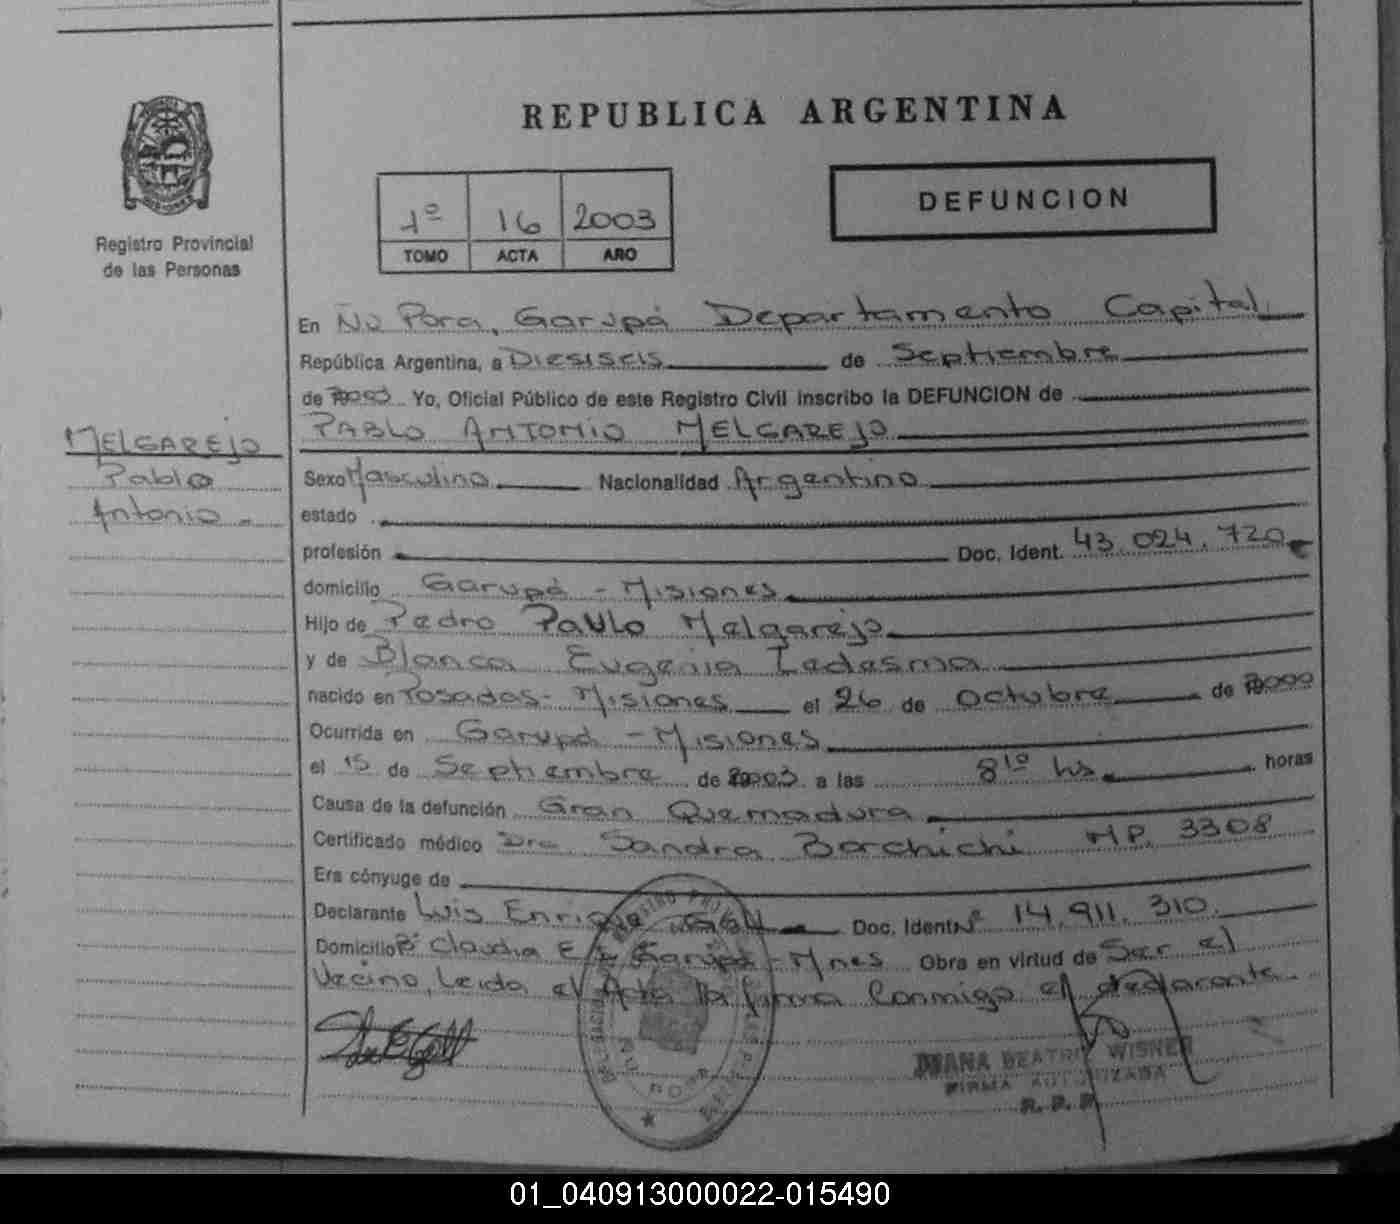 REPUBLICA ARGENTINA
Registro Provincial
de las Personas
1º 16 2003
TOMO ACTA AÑO
DEFUNCION
En Ñu Pora, Garupá Departamento Capital
República Argentina, a Diesiseis de Septiembre
de 2003 Yo, Oficial Público de este Registro Civil inscribo la DEFUNCION de
MELGAREJO
Pablo
Antonio
PABLO ANTONIO MELGAREJO
Sexo Masculino Nacionalidad Argentino
estado
profesión Doc. Ident. 43.024.720
domicilio Garupá - Misiones
Hijo de Pedro Pablo Melgarejo
y de Blanca Eugenia Ledesma
nacido en Posadas - Misiones el 26 de Octubre de 2000
Ocurrida en Garupá - Misiones
el 15 de Septiembre de 2003 a las 8¹⁰ hs horas
Causa de la defunción Gran Quemadura
Certificado médico Dra. Sandra Borchichi MP. 3308
Era cónyuge de
Declarante Luis Enrique Doc. Ident Nº 14.911.310
Domicilio Bº Claudia Garupá - Mnes Obra en virtud de Ser el
Vecino, Leida el Acta la firma Conmigo el declarante.
JUANA BEATRIZ WISNER
FIRMA AUTORIZADA
R. P. P
01_040913000022-015490